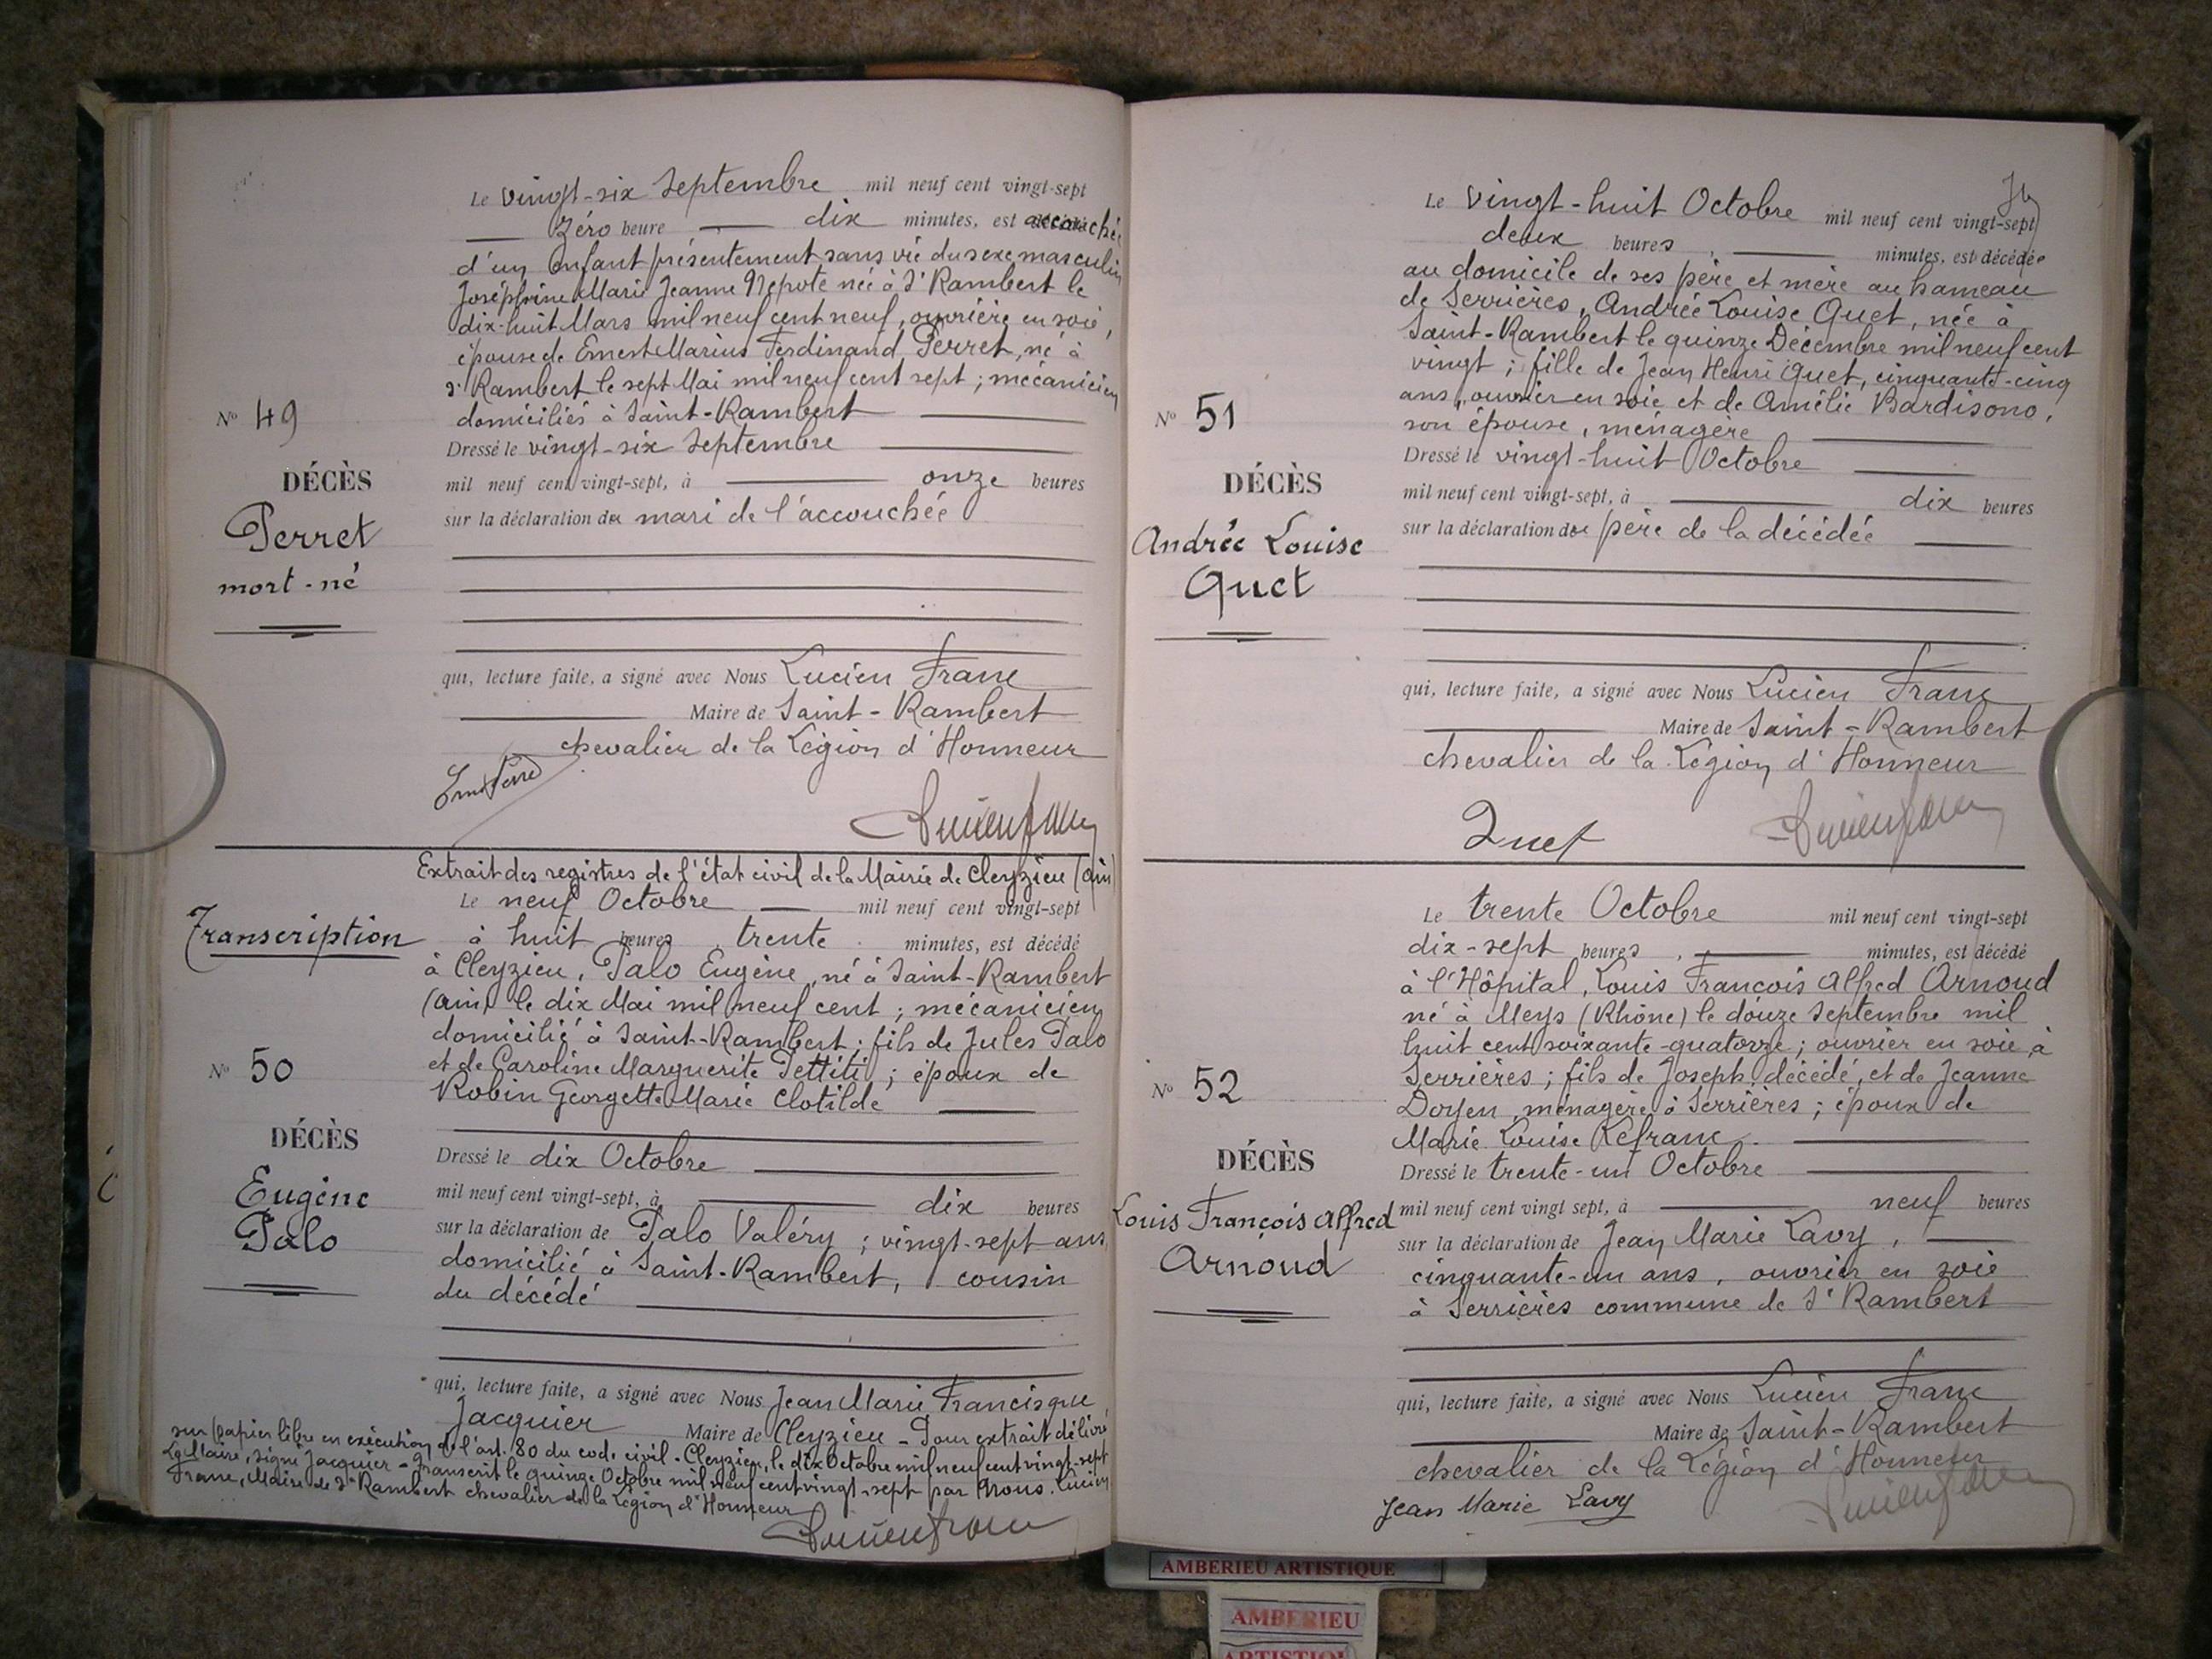 Le vingt-six Septembre mil neuf cent vingt-sept
Zéro heure, dix minutes, est accouchée
d'un Enfant présentement sans vie du sexe masculin
Joséphine Marie Jeanne Nepote née à St Rambert le
dix-huit Mars mil neuf cent neuf, ouvrière en soie,
épouse de Ernest Marius Ferdinand Perret, né à
St Rambert le sept Mai mil neuf cent sept ; mécanicien
domiciliés à Saint-Rambert
Dressé le vingt-six Septembre
mil neuf cent vingt-sept, à onze heures
sur la déclaration du mari de l'accouchée
No 49
DÉCÈS
Perret
mort-né
qui, lecture faite, a signé avec Nous Lucien Franc
Maire de Saint-Rambert
chevalier de la Légion d'Honneur
Extrait des registres de l'état civil de la Mairie de Cleyzieu (Ain)
Transcription
Le neuf Octobre mil neuf cent vingt-sept
à huit heures, trente minutes, est décédé
à Cleyzieu, Palo Eugène, né à Saint-Rambert
(Ain) le dix Mai mil neuf cent ; mécanicien
domicilié à Saint-Rambert ; fils de Jules Palo
et de Caroline Marguerite Pettiti ; époux de
Robin Georgette Marie Clotilde
Dressé le dix Octobre
mil neuf cent vingt-sept, à dix heures
sur la déclaration de Palo Valéry ; vingt-sept ans,
domicilié à Saint-Rambert, cousin
du décédé
No 50
DÉCÈS
Eugène
Palo
qui, lecture faite, a signé avec Nous Jean Marie Francisque
Jacquier Maire de Cleyzieu - Pour extrait délivré
sur papier libre en exécution de l'art. 80 du code civil - Cleyzieu, le dix Octobre mil neuf cent vingt-sept
Le Maire, signé Jacquier - Transcrit le quinze Octobre mil neuf cent vingt-sept par Nous Lucien
Franc, Maire de St Rambert chevalier de la Légion d'Honneur
Le vingt-huit Octobre mil neuf cent vingt-sept
deux heures, minutes, est décédée
au domicile de ses père et mère au hameau
de Serrières, Andrée Louise Quet, née à
Saint-Rambert le quinze Décembre mil neuf cent
vingt ; fille de Jean Henri Quet, cinquante-cinq
ans, ouvrier en soie et de Amélie Bardisono,
son épouse, ménagère
Dressé le vingt-huit Octobre
mil neuf cent vingt-sept, à dix heures
sur la déclaration du père de la décédée
No 51
DÉCÈS
Andrée Louise
Quet
qui, lecture faite, a signé avec Nous Lucien Franc
Maire de Saint-Rambert
chevalier de la Légion d'Honneur
Quet
Le trente Octobre mil neuf cent vingt-sept
dix-sept heures, minutes, est décédé
à l'Hôpital, Louis François Alfred Arnoud
né à Meys (Rhône) le douze Septembre mil
huit cent soixante-quatorze ; ouvrier en soie à
Serrières ; fils de Joseph décédé, et de Jeanne
Doyen, ménagère à Serrières ; époux de
Marie Louise Lefranc.
Dressé le trente-un Octobre
mil neuf cent vingt sept, à neuf heures
sur la déclaration de Jean Marie Lavy,
cinquante-un ans, ouvrier en soie
à Serrières commune de St Rambert
No 52
DÉCÈS
Louis François Alfred
Arnoud
qui, lecture faite, a signé avec Nous Lucien Franc
Maire de Saint-Rambert
chevalier de la Légion d'Honneur
Jean Marie Lavy
AMBERIEU ARTISTIQUE
AMBERIEU
ARTISTIQUE